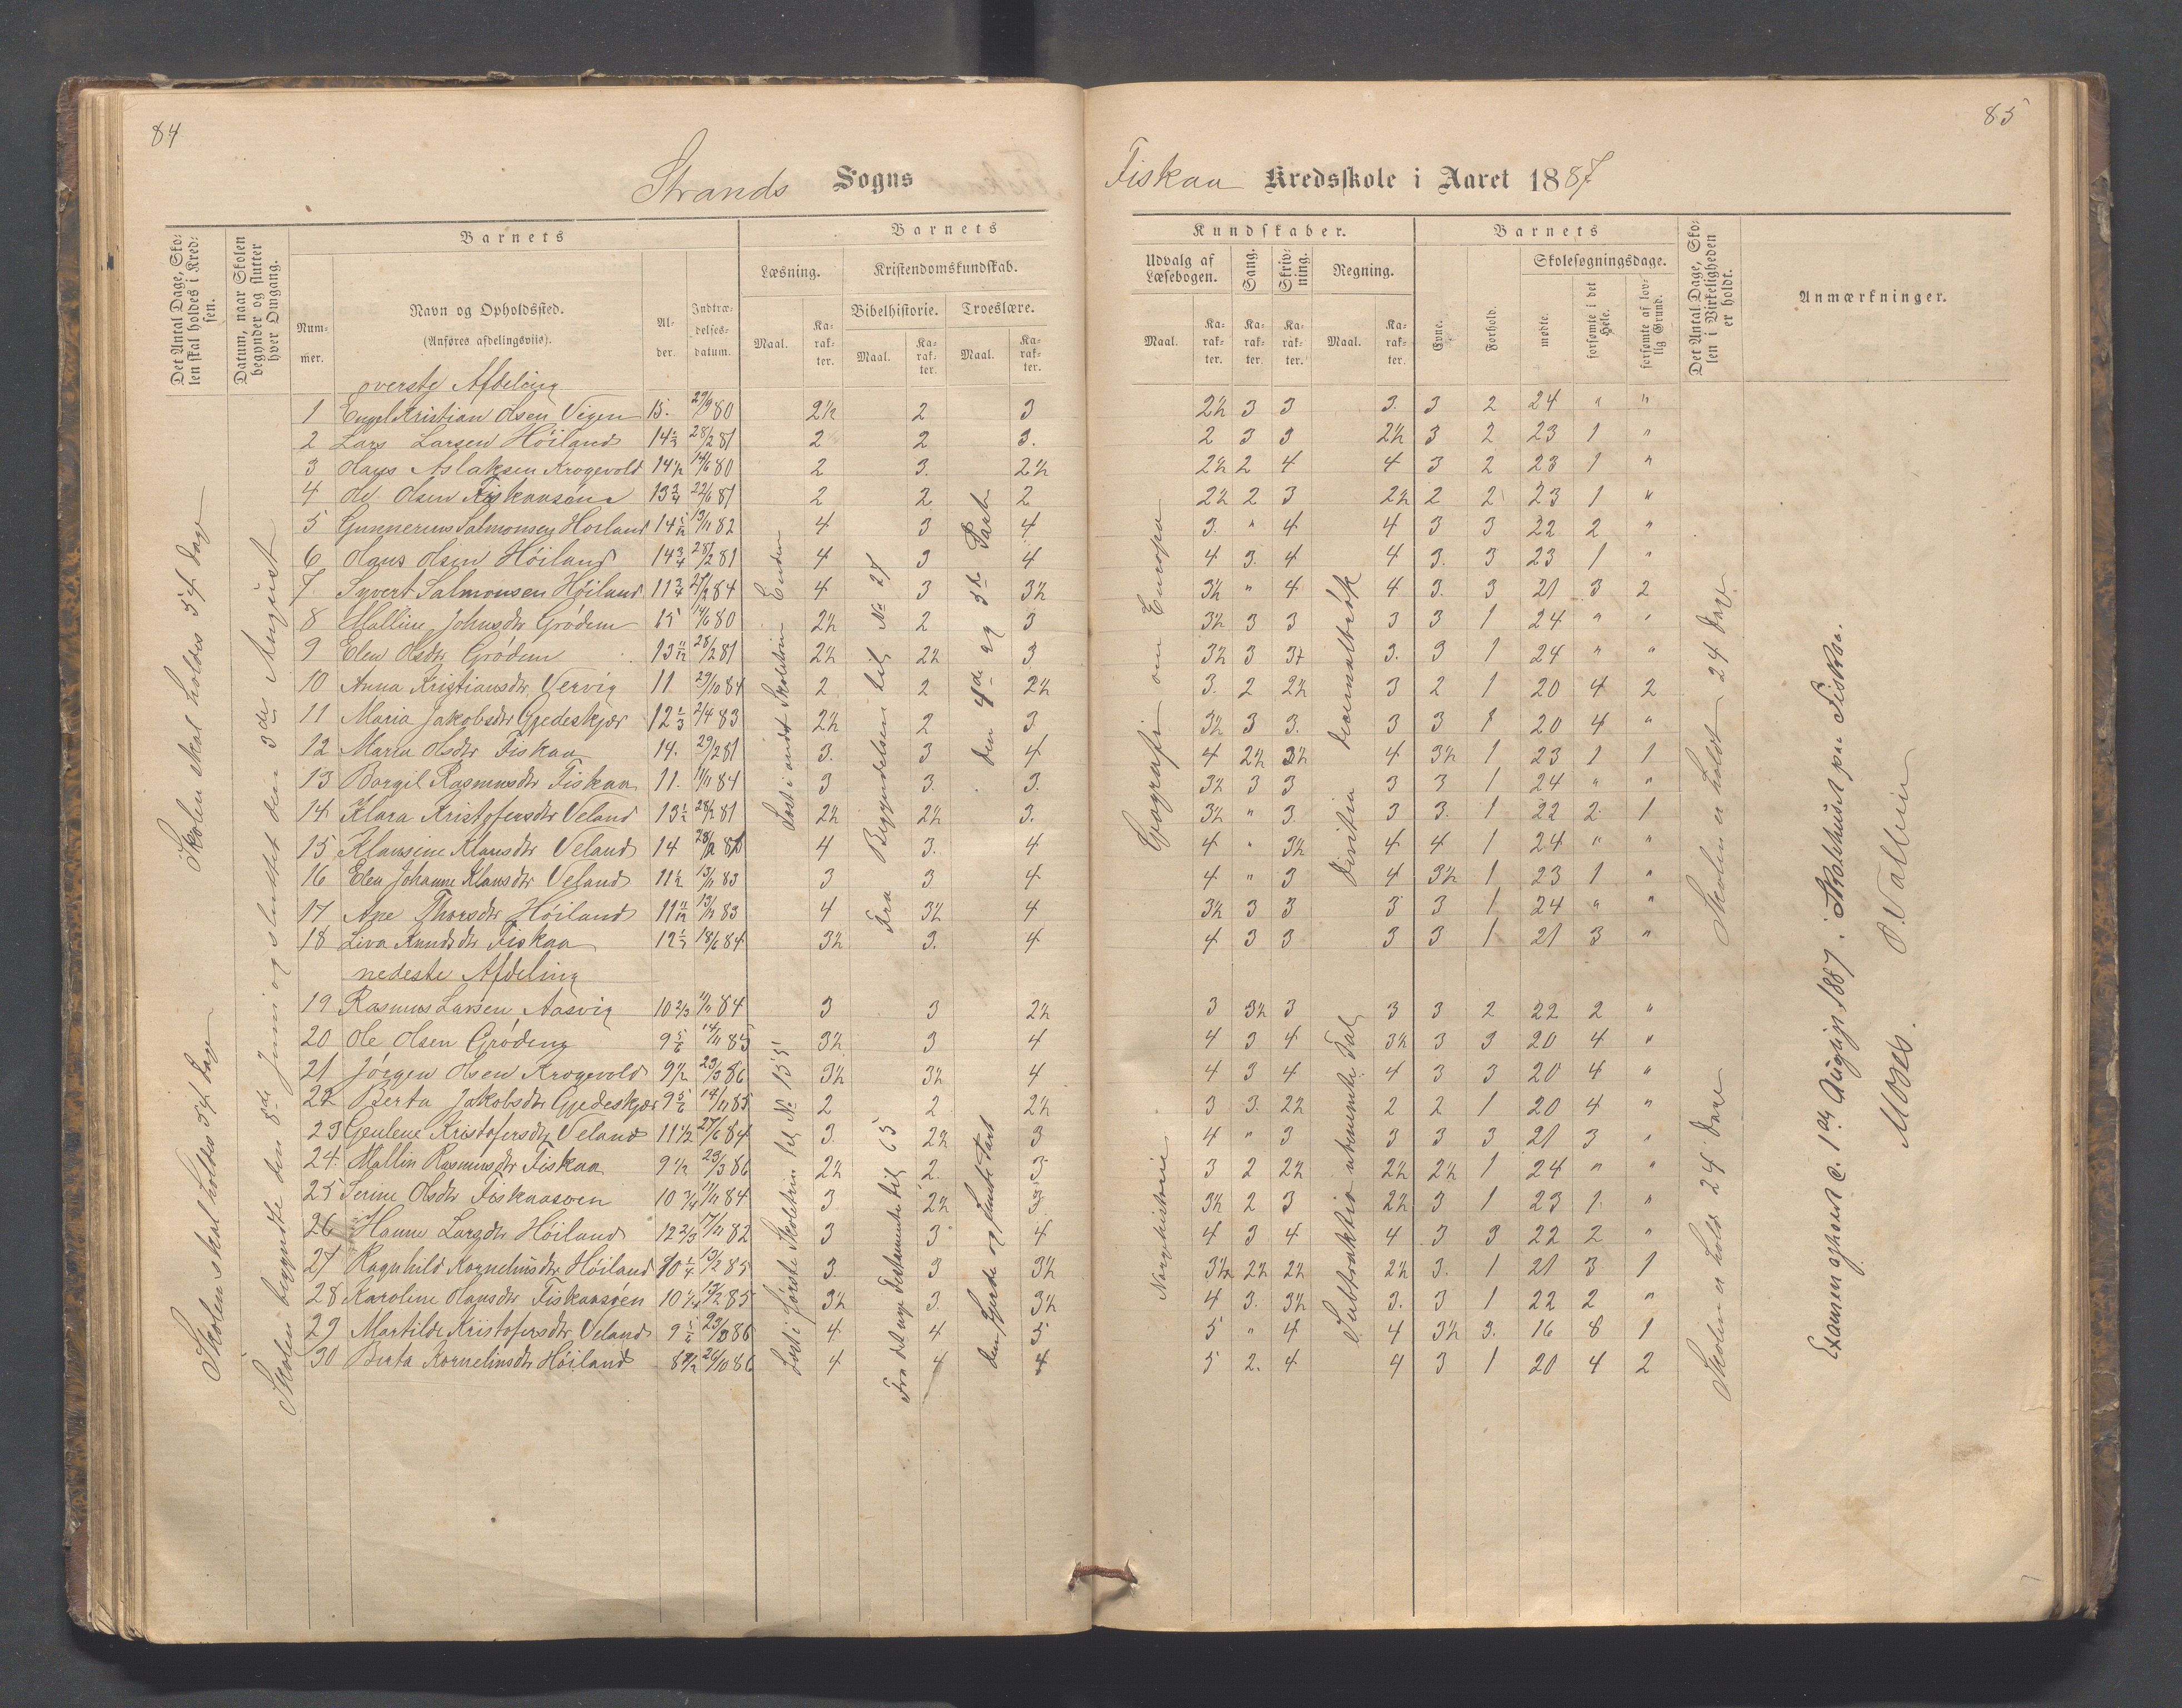 84
Strands Sogns
Det Antal Dage, Sko-
len skal holdes i Kred-
sen.
Datum, naar Skolen
begynder og slutter
hver Omgang.
Barnets
Num-
mer.
Navn og Opholdssted.
(Anføres afdelingsviis).
Al-
der.
Indtræ-
delses-
datum.
Barnets
Læsning.
Maal.
Ka-
rak-
ter.
Kristendomskundskab.
Bibelhistorie.
Maal.
Ka-
rak-
ter.
Troeslære.
Maal.
Ka-
rak-
ter.
Skolen skal holdes 54 Dage
Skolen skal holdes 54 Dage
Skolen begyndte den 8de Juni og sluttet den 3die August
overste Afdeling
1 Engel Kristian Olsen Vigen 15. 29/9 80 2½ 2 3
2 Lars Larsen Høiland 28/2 81 2 2 3.
3 Aslaksen Krogevold 14½ 14/6 80 2 3. 2½
4 Ole Olsen 13¾ 22/6 81 2 2 2
5 Gunnerius Salmonsen Høiland 13/11 82 4 3 4
6 Olaus Olsen Høiland 14¾ 28/2 81 4 3 4
7. Syvert Salmonsen Høiland 11¾ 84 4 3 3½
8 Malline Johnsdtr Grødem 15 14/6 80 2½ 2 3
9 Elen Olsdtr Grødem 28/2 81 2½ 2½ 3
10 Anna Kristiansdtr Vervig 11 29/10 84 2 2 2½
11 Maria Jakobsdtr Gjedeskjær 2/4 83 2½ 2 3
12 Maria Olsdtr Fiskaa 14. 29/2 81 3. 3 4
13 Borgil Rasmusdtr Fiskaa 11. 11/11 84 3 3. 3.
14 Klara Kristofersdtr Veland 13½ 28/2 81 2½ 2½ 3.
15 Klausine Klausdtr Veland 14 4 3. 4
16 Elen Johanne Klausdtr Veland 11½ 83 3 3 4
17 Ane Thorsdtr Høiland 83 4 3½ 4
18 Liva Knudsdtr Fiskaa 18/6 84 3½ 3. 4
nedeste Afdeling
19 Rasmus Larsen Aasvig 10⅔ 84 3 3 2½
20 Ole Olsen Grødem 9⅚ 14/11 85 3½ 3 4
21 Jørgen Olsen Krogevold 9½ 23/3 86 3½ 3½ 4
22 Berta Jakobsdtr Gjedeskjær 9⅚ 14/11 85 2 2 2½
23 Kristofersdtr Veland 11½ 27/6 84 3. 2½ 3
24. Mallin Rasmusdtr Fiskaa 9½ 23/3 86 2½ 2. 3.
25 Serine Olsdtr Fiskaasøen 10¾ 11/11 84 3 2½ 3
26 Hanne Larsdtr Høiland 12⅔ 17/11 82 3 3 4
27 Ragnhild Kornelinsdtr Høiland 10¼ 85 3. 3 3½
28 Karoline Hansdtr Fiskaasøen 85 3½ 3. 3½
29 Martilde Kristofersdtr Veland 23/3 86 4. 4 5
30 Berta Kornelinsdtr Høiland 8½ 26/10 86 4 4 4
Læst i andet Skoletrin Enden
Fra Begyndelsen til No 27
den 4de og 5te Part
Læst i første Skoletrin til No 135
Fra det nye Testamente til 65
den fjerde og femte Part
85
Fiskaa Kredsskole i Aaret 1887
Kundskaber.
Udvalg af
Læsebogen.
Maal.
Ka-
rak-
ter.
Sang.
Ka-
rak-
ter.
Skriv-
ning.
Ka-
rak-
ter.
Regning.
Maal.
Ka-
rak-
ter.
Barnets
Evne.
Forhold.
Skolesøgningsdage.
mødte.
forsømte i det
Hele.
forsømte af lov-
lig Grund.
Det Antal Dage, Sko-
len i Virkeligheden
er holdt.
Anmærkninger.
2½ 3 3 3. 3 2 24 " "
2 3 3 2½ 3 2 23 1 "
2½ 2 4 4 3 2 23 1 "
2½ 2 3 2½ 2 2 23 1 "
3. " 4 4 3 3 22 2 "
4 3. 4 4 3. 3 23 1 "
3½ " 4 4 3. 3 21 3 2
3½ 3 3 3 3 1 24 " "
3½ 3 3. 3 1 24 " "
3. 2 2½ 3 2 1 20 4 2
3½ 3 3. 3 3 1 20 4 "
4 2½ 3½ 4 3½ 1 23 1 1
3½ 3 3 3 3 1 24 " "
3½ " 3 3 3. 1 22 2 1
4 " 3½ 4 4 1 24 " "
4 " 3 4 3½ 1 23 1 "
3½ 3 3 3 3 1 24 " "
4 3 3 3 3 1 21 3 "
3 3½ 3 3 3 2 22 2 "
4 3 4 3½ 3 3 20 4 "
4 3 4 4 3 3 20 4 "
3 3. 2½ 2 2 1 20 4 "
4 " 3 3 3 3 21 3 "
3 2 2½ 2½ 2½ 1 24 " "
3½ 2 3 2½ 3 1 23 1. "
4 3 4 4 3 3 22 2 "
3½ 2½ 2½ 2½ 3. 1 21 3 1
4 3. 3½ 3. 3 1 22 2 "
5 " 4 4 3½ 3. 16 8 1
5 2. 4 4 3 1 20 4 2
Geografi om Europa
Division decimalbrøk
Norgshistorie
Subtraktio ubenevnte Tal
Skolen er holdt 24 Dage
Skolen er holdt 24 Dage
Examen afholdt d. 1ste August 1887 i Skolehuset paa Fiskaa.
P. Vallin
Moses.